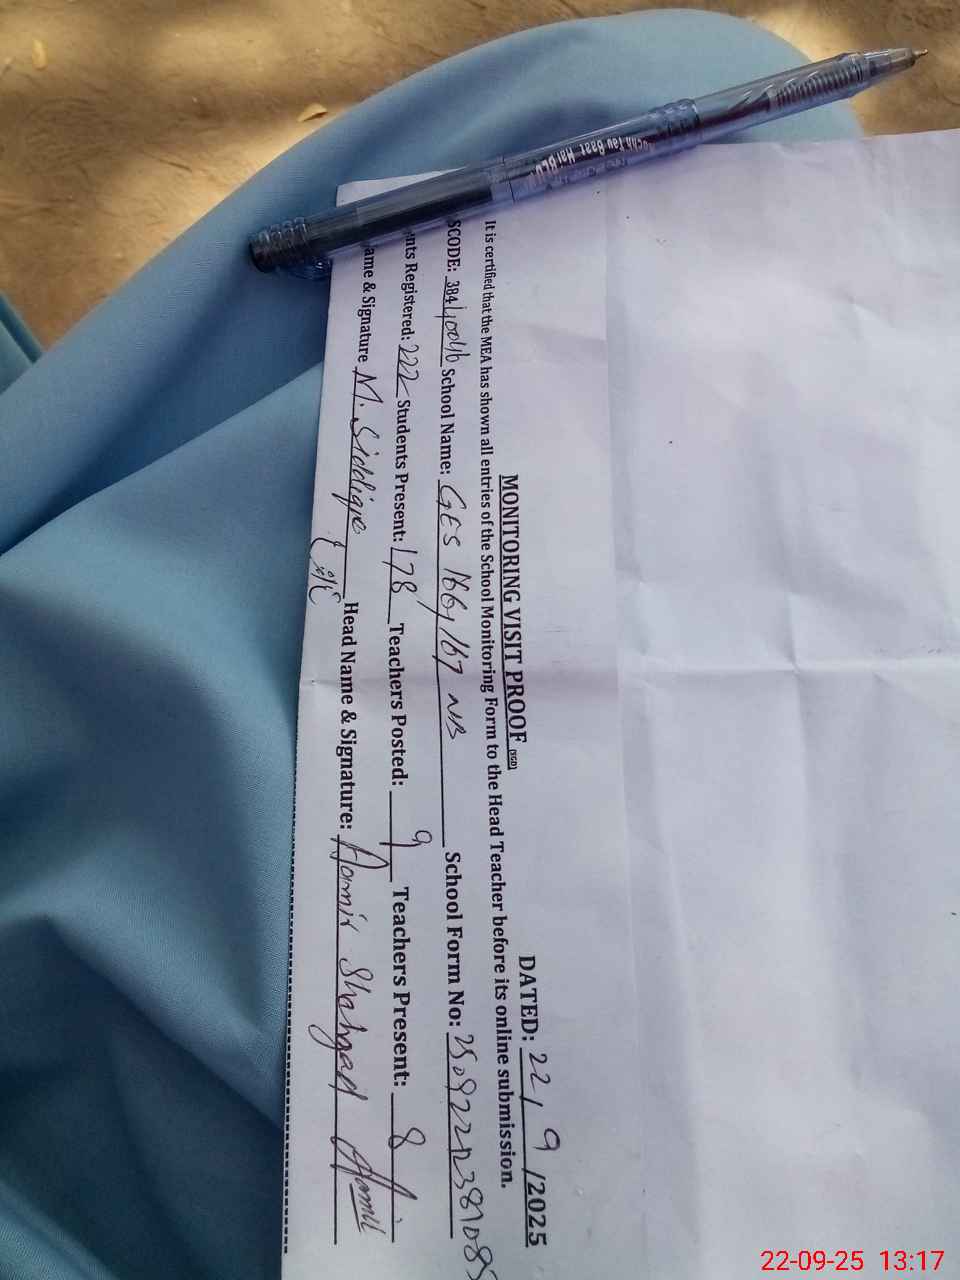 MONITORING VISIT PROOF (SGD) DATED: 22/9/2025
It is certified that the MEA has shown all entries of the School Monitoring Form to the Head Teacher before its online submission.
SCODE: 38440046 School Name: GES 166/167 NB School Form No:
nts Registered: 222 Students Present: 178 Teachers Posted: 9 Teachers Present: 8
ame & Signature M. Siddique Head Name & Signature: Aamir Shahzad Aamir
22-09-25 13:17